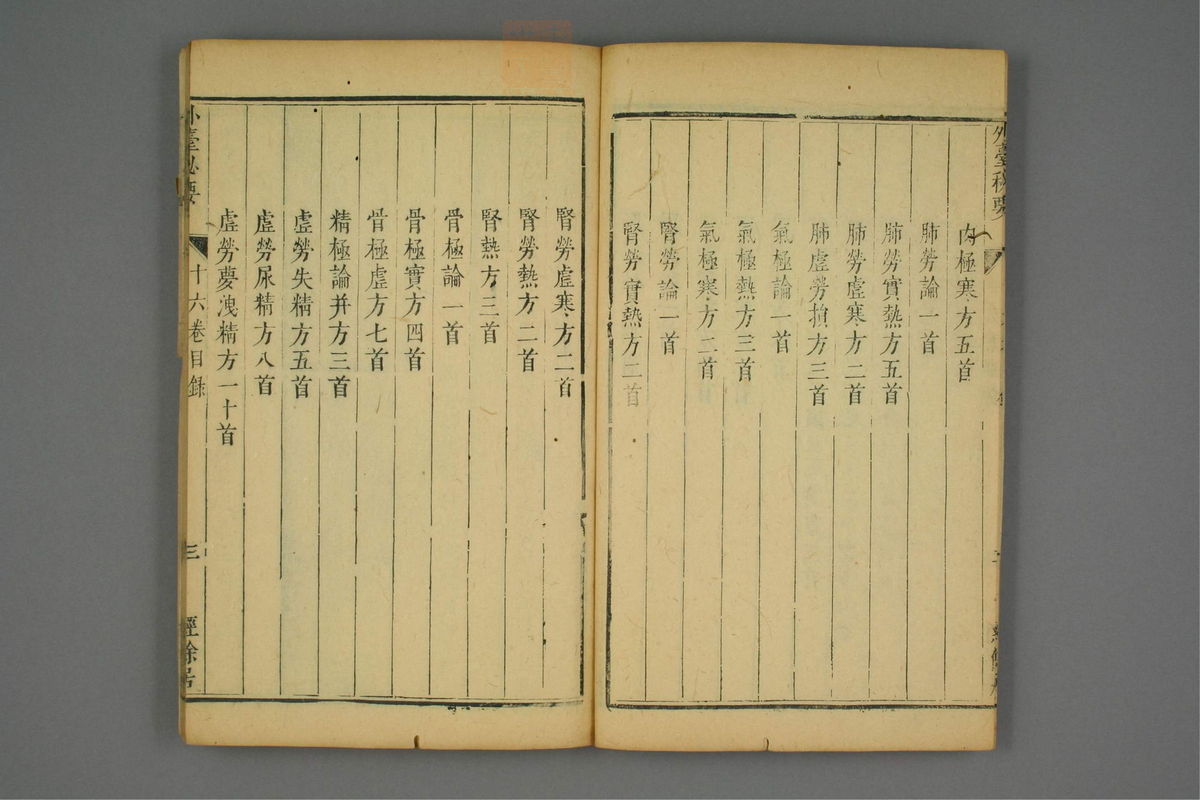 外臺秘要
肉極寒方五首
肺勞論一首
肺勞實熱方五首
肺勞虛寒方二首
肺虛勞損方三首
氣極論一首
氣極熱方三首
氣極寒方二首
腎勞論一首
腎勞實熱方二首
腎勞虛寒方二首
腎勞熱方二首
腎熱方三首
骨極論一首
骨極實方四首
骨極虛方七首
精極論并方三首
虛勞失精方五首
虛勞尿精方八首
虛勞夢洩精方一十首
外臺秘要
十六卷目錄
三
經餘居